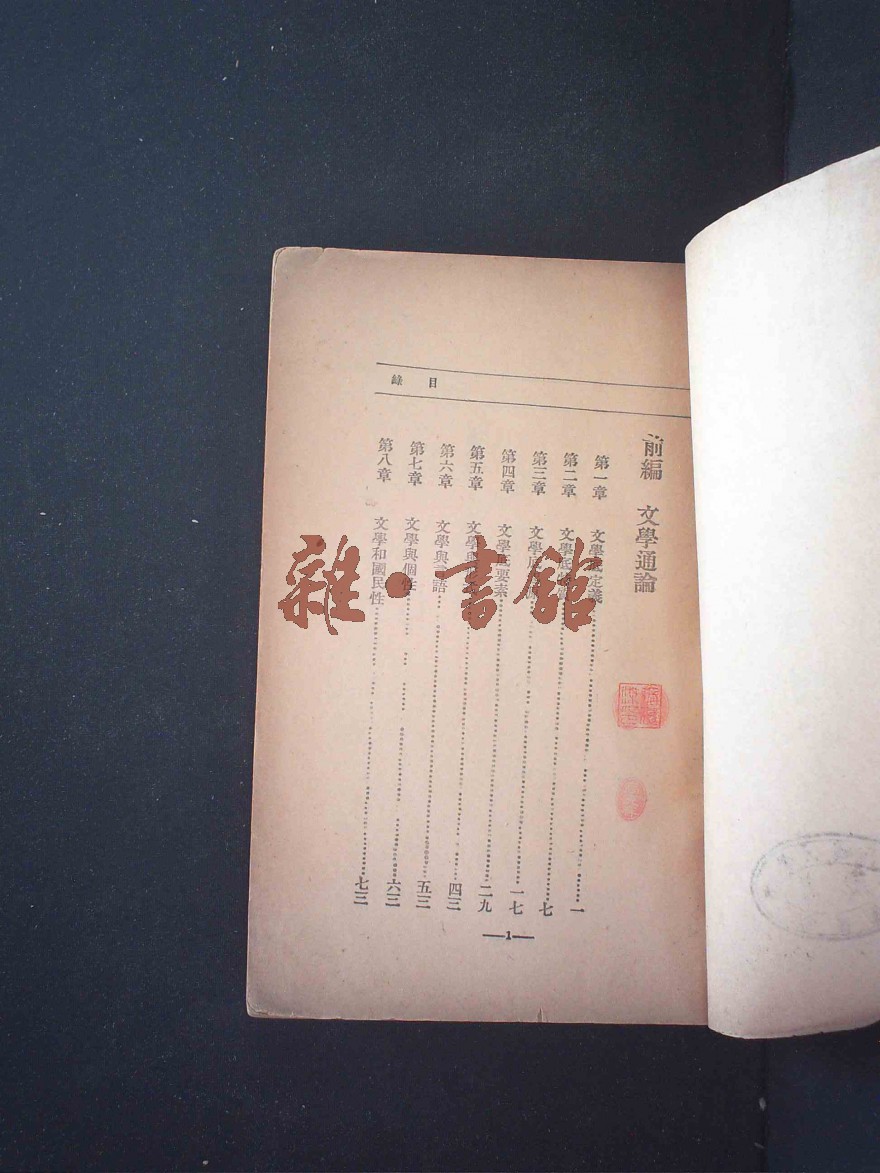 目錄
前編 文學通論
第一章 文學底定義 一
第二章 文學底 七
第三章 文學底 一七
第四章 文學底要素 二九
第五章 文學與 四三
第六章 文學與言語 五三
第七章 文學與個性 六三
第八章 文學和國民性 七三
—1—
雜·書館